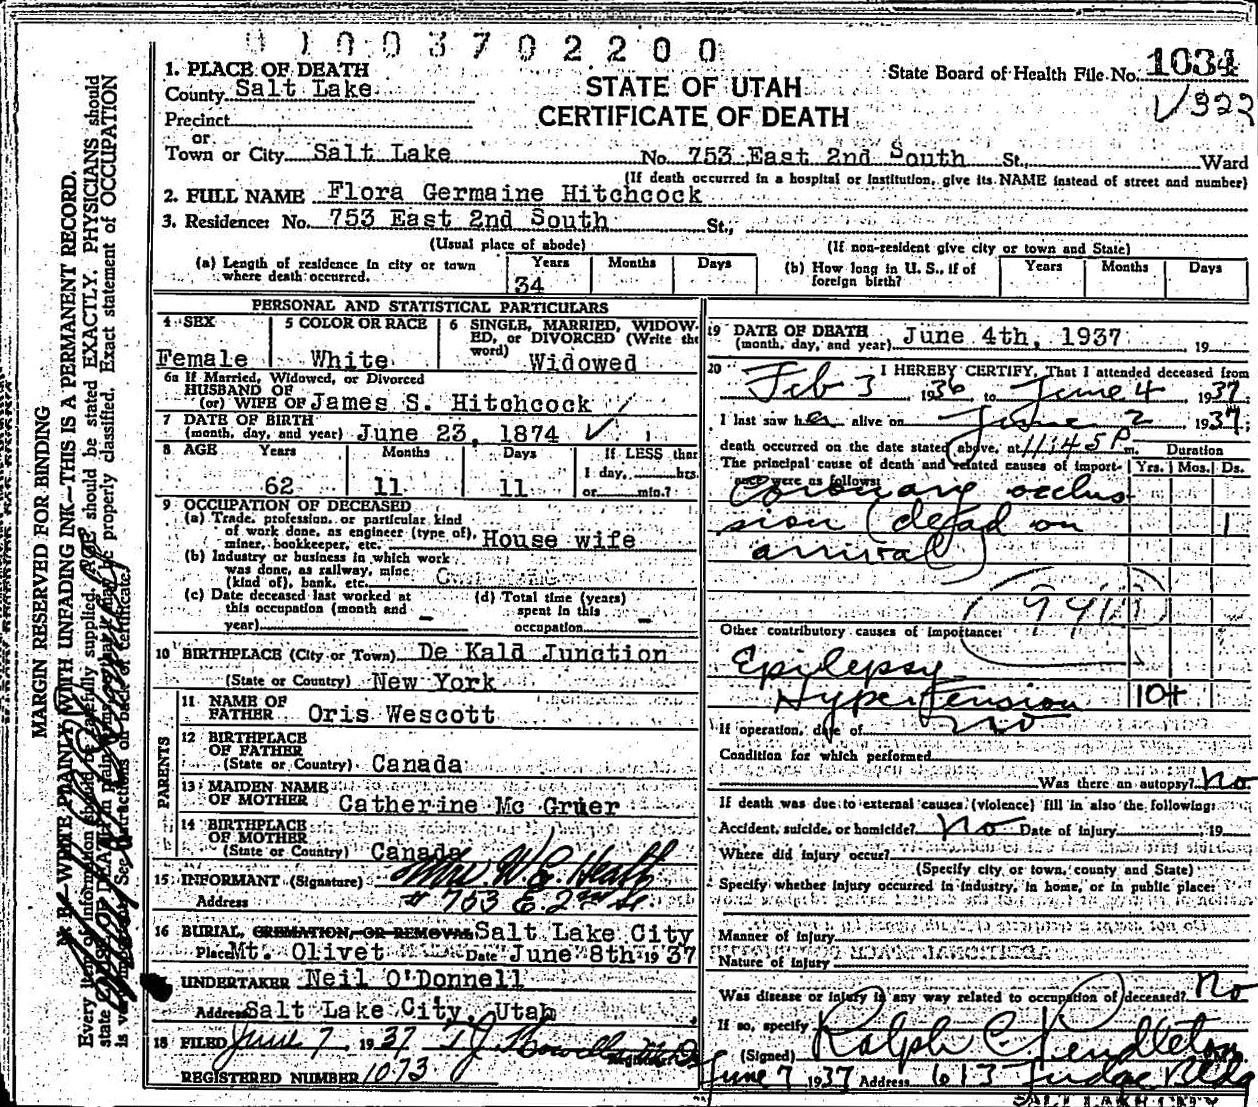 0 1 0 0 3 7 0 2 2 0 0
1. PLACE OF DEATH
County Salt Lake
STATE OF UTAH
CERTIFICATE OF DEATH
State Board of Health File No. 1034
Precinct
or
Town or City Salt Lake No. 753 East 2nd South St., Ward
(If death occurred in a hospital or institution, give its NAME instead of street and number)
2. FULL NAME Flora Germaine Hitchcock
3. Residence: No. 753 East 2nd South St.,
(Usual place of abode) (If non-resident give city or town and State)
(a) Length of residence in city or town where death occurred. Years 34 Months Days
(b) How long in U. S., if of foreign birth? Years Months Days
PERSONAL AND STATISTICAL PARTICULARS
4 SEX Female
5 COLOR OR RACE White
6 SINGLE, MARRIED, WIDOWED, or DIVORCED (Write the word) Widowed
6a If Married, Widowed, or Divorced
HUSBAND OF
(or) WIFE OF James S. Hitchcock
7 DATE OF BIRTH
(month, day, and year) June 23, 1874
8 AGE Years Months Days If LESS than
62 11 11 1 day, hrs.
or min.?
9 OCCUPATION OF DECEASED
(a) Trade, profession, or particular kind
of work done, as engineer (type of),
miner, bookkeeper, etc. House wife
(b) Industry or business in which work
was done, as railway, mine
(kind of), bank, etc.
(c) Date deceased last worked at
this occupation (month and
year) -
(d) Total time (years)
spent in this
occupation -
10 BIRTHPLACE (City or Town) De Kald Junction
(State or Country) New York
PARENTS
11 NAME OF
FATHER Oris Wescott
12 BIRTHPLACE
OF FATHER
(State or Country) Canada
13 MAIDEN NAME
OF MOTHER Catherine Mc Gruer
14 BIRTHPLACE
OF MOTHER
(State or Country) Canada
15 INFORMANT (Signature) Mrs W. E. Heath
Address # 753 E. 2nd So.
16 BURIAL, CREMATION, OR REMOVAL Salt Lake City
Place Mt. Olivet Date June 8th 1937
UNDERTAKER Neil O'Donnell
Address Salt Lake City, Utah
18 FILED June 7 1937
REGISTERED NUMBER 1073
19 DATE OF DEATH
(month, day, and year) June 4th, 1937 19
20 I HEREBY CERTIFY, That I attended deceased from
Feb 3 1936 to June 4 1937;
I last saw her alive on June 2 1937;
death occurred on the date stated above, at 11:45 P m. Duration
The principal cause of death and related causes of importance were as follows: Yrs. Mos. Ds.
Coronary occlu-
sion (dead on 1
arrival)
Other contributory causes of importance:
Epilepsy
Hypertension 10+
If operation, date of no
Condition for which performed
Was there an autopsy? No
If death was due to external causes (violence) fill in also the following:
Accident, suicide, or homicide? No Date of injury 19
Where did injury occur?
(Specify city or town, county and State)
Specify whether injury occurred in industry, in home, or in public place:
Manner of injury
Nature of injury
Was disease or injury in any way related to occupation of deceased? No
If so, specify
(Signed) Ralph C. Pendleton
June 7 1937 Address 613 Judge Bldg
SALT LAKE CITY
MARGIN RESERVED FOR BINDING
N. B.—WRITE PLAINLY WITH UNFADING INK—THIS IS A PERMANENT RECORD.
Every item of information should be carefully supplied. AGE should be stated EXACTLY. PHYSICIANS should
state CAUSE OF DEATH in plain terms, that it may be properly classified. Exact statement of OCCUPATION
is very important. See instructions on back of certificate.